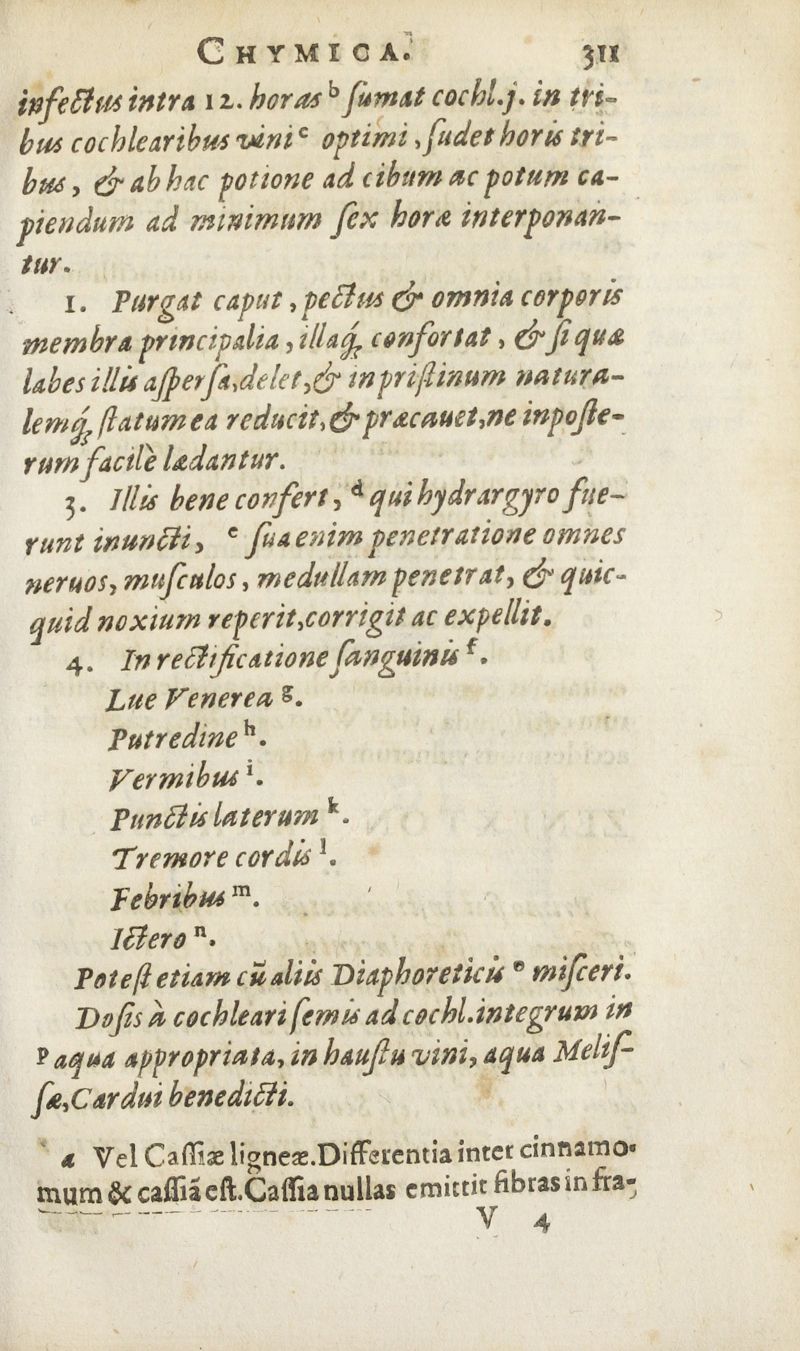 CHYMICA. 311
infectus intra 12. horas b ſumat cochl.j. in tri-
bus cochlearibus vini c optimi, ſudet horis tri-
bus, & ab hac potione ad cibum ac potum ca-
piendum ad minimum ſex horæ interponan-
tur.
1. Purgat caput, pectus & omnia corporis
membra principalia, illaq́; confortat, & ſi quæ
labes illis aſperſa, delet, & in priſtinum natura-
lemq́; ſtatum ea reducit, & præcauet, ne inpoſte-
rum facilè lædantur.
3. Illis bene confert, d qui hydrargyro fue-
runt inuncti, e ſua enim penetratione omnes
neruos, muſculos, medullam penetrat, & quic-
quid noxium reperit, corrigit ac expellit.
4. In rectificatione ſanguinis f.
Lue Venerea g.
Putredine h.
Vermibus i.
Punctis laterum k.
Tremore cordis l.
Febribus m.
Ictero n.
Poteſt etiam cū aliis Diaphoreticis o miſceri.
Doſis à cochleari ſemis ad cochl. integrum in
p aqua appropriata, in hauſtu vini, aqua Meliſ-
ſæ, Cardui benedicti.
a Vel Caſſiæ ligneæ. Differentia inter cinnamo-
mum & caſſiā eſt. Caſſia nullas emittit fibras in fra-
V 4